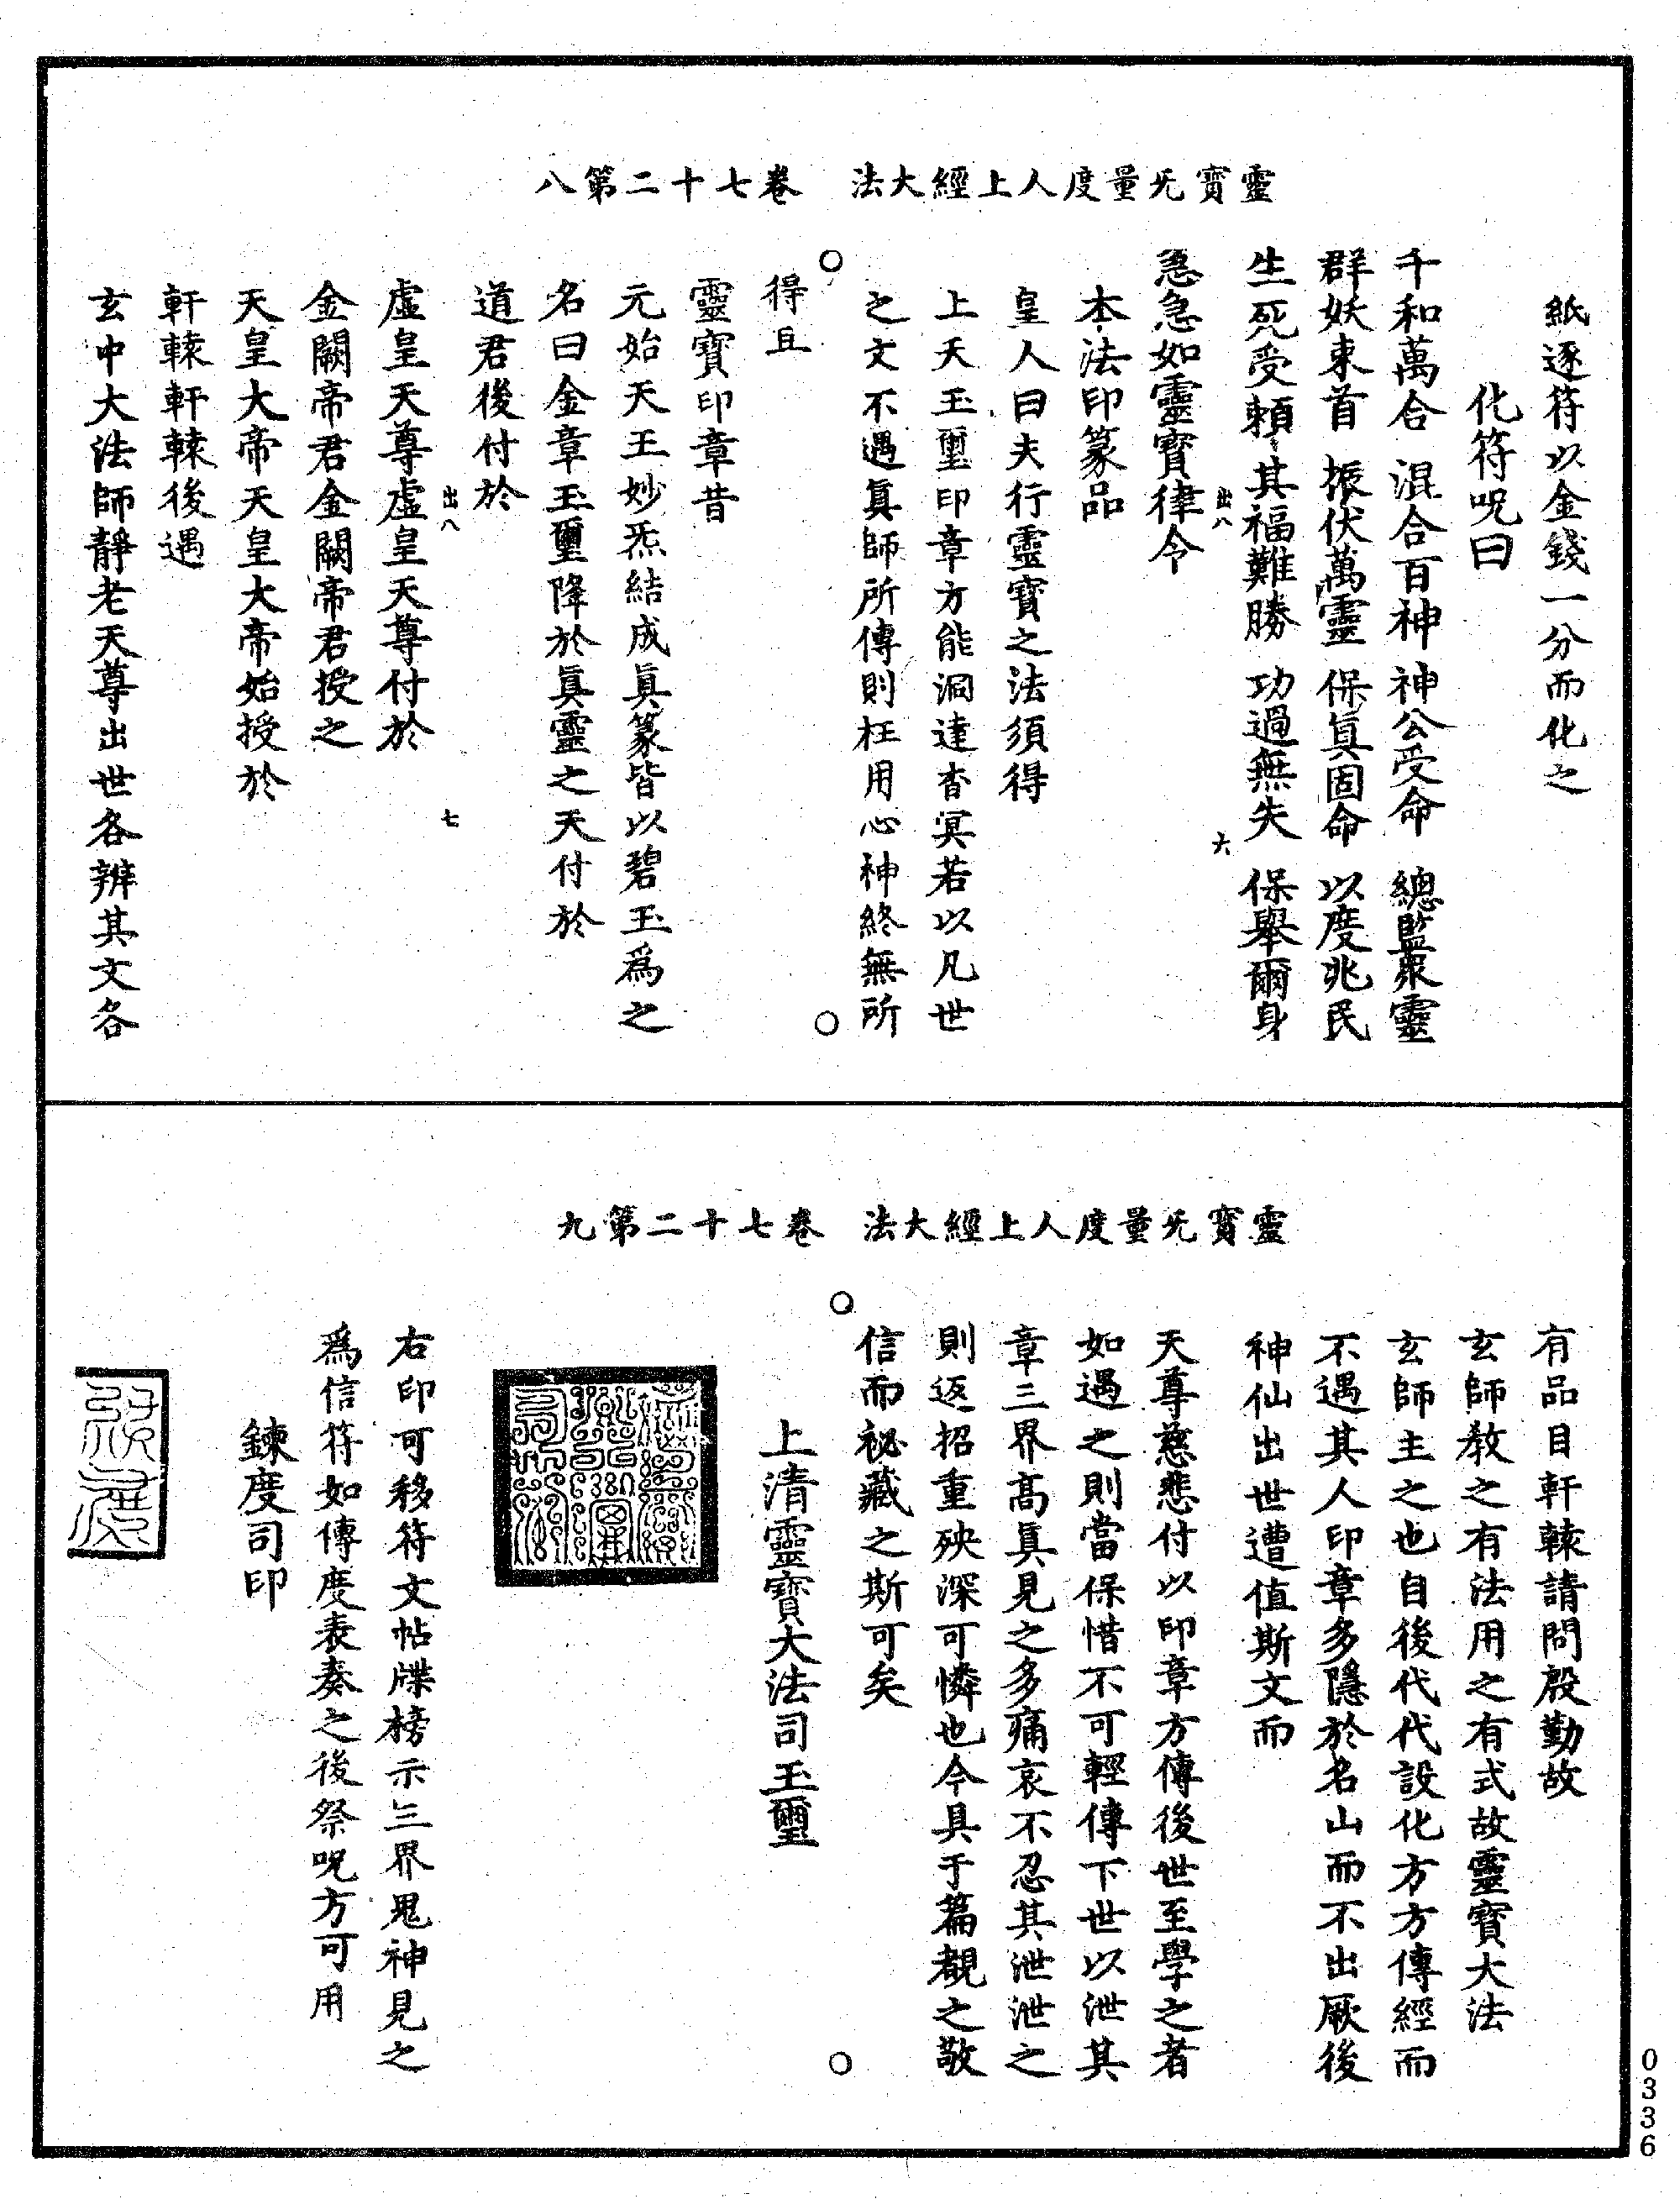 靈寳无量度人上經大法　卷七十二第八
紙逐符以金錢一分而化之
化符呪曰
千和萬合　混合百神　神公受命　總監衆靈
群妖束首　振伏萬靈　保眞固命　以度兆民
生死受賴　其福難勝　功過無失　保舉爾身
出八　六
急急如靈寳律令
本法印篆品
皇人曰夫行靈寳之法須得
上天玉璽印章方能洞達杳冥若以凡世
之文不遇眞師所傳則枉用心神終無所
得且
靈寳印章昔
元始天王妙炁結成眞篆皆以碧玉爲之
名曰金章玉璽降於眞靈之天付於
道君後付於
出八　七
虛皇天尊虛皇天尊付於
金闕帝君金闕帝君授之
天皇大帝天皇大帝始授於
軒轅軒轅後遇
玄中大法師靜老天尊出世各辨其文各
靈寳无量度人上經大法　卷七十二第九
有品目軒轅請問殷勤故
玄師教之有法用之有式故靈寳大法
玄師主之也自後代代設化方方傳經而
不遇其人印章多隱於名山而不出厥後
神仙出世遭值斯文而
天尊慈悲付以印章方傳後世至學之者
如遇之則當保惜不可輕傳下世以泄其
章三界高眞見之多痛哀不忍其泄泄之
則返招重殃深可憐也今具于篇覩之敬
信而祕藏之斯可矣
上清靈寳大法司玉璽
右印可移符文帖牒榜示三界鬼神見之
爲信符如傳度表奏之後祭呪方可用
鍊度司印
0336